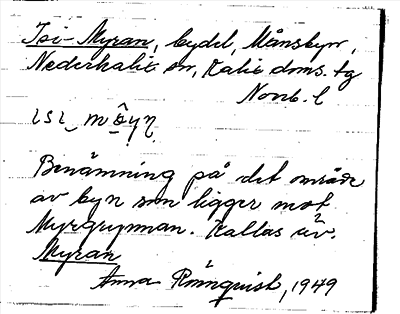 Isi-Myran, bydel, Månsbyn,
Nederkalix sn, Kalix dms. tg
Norrb. l
ɩsɩ
Benämning på det område
av byn som ligger mot
Myrgrynnan. Kallas äv.
Myran
Anna Rönnquist, 1949